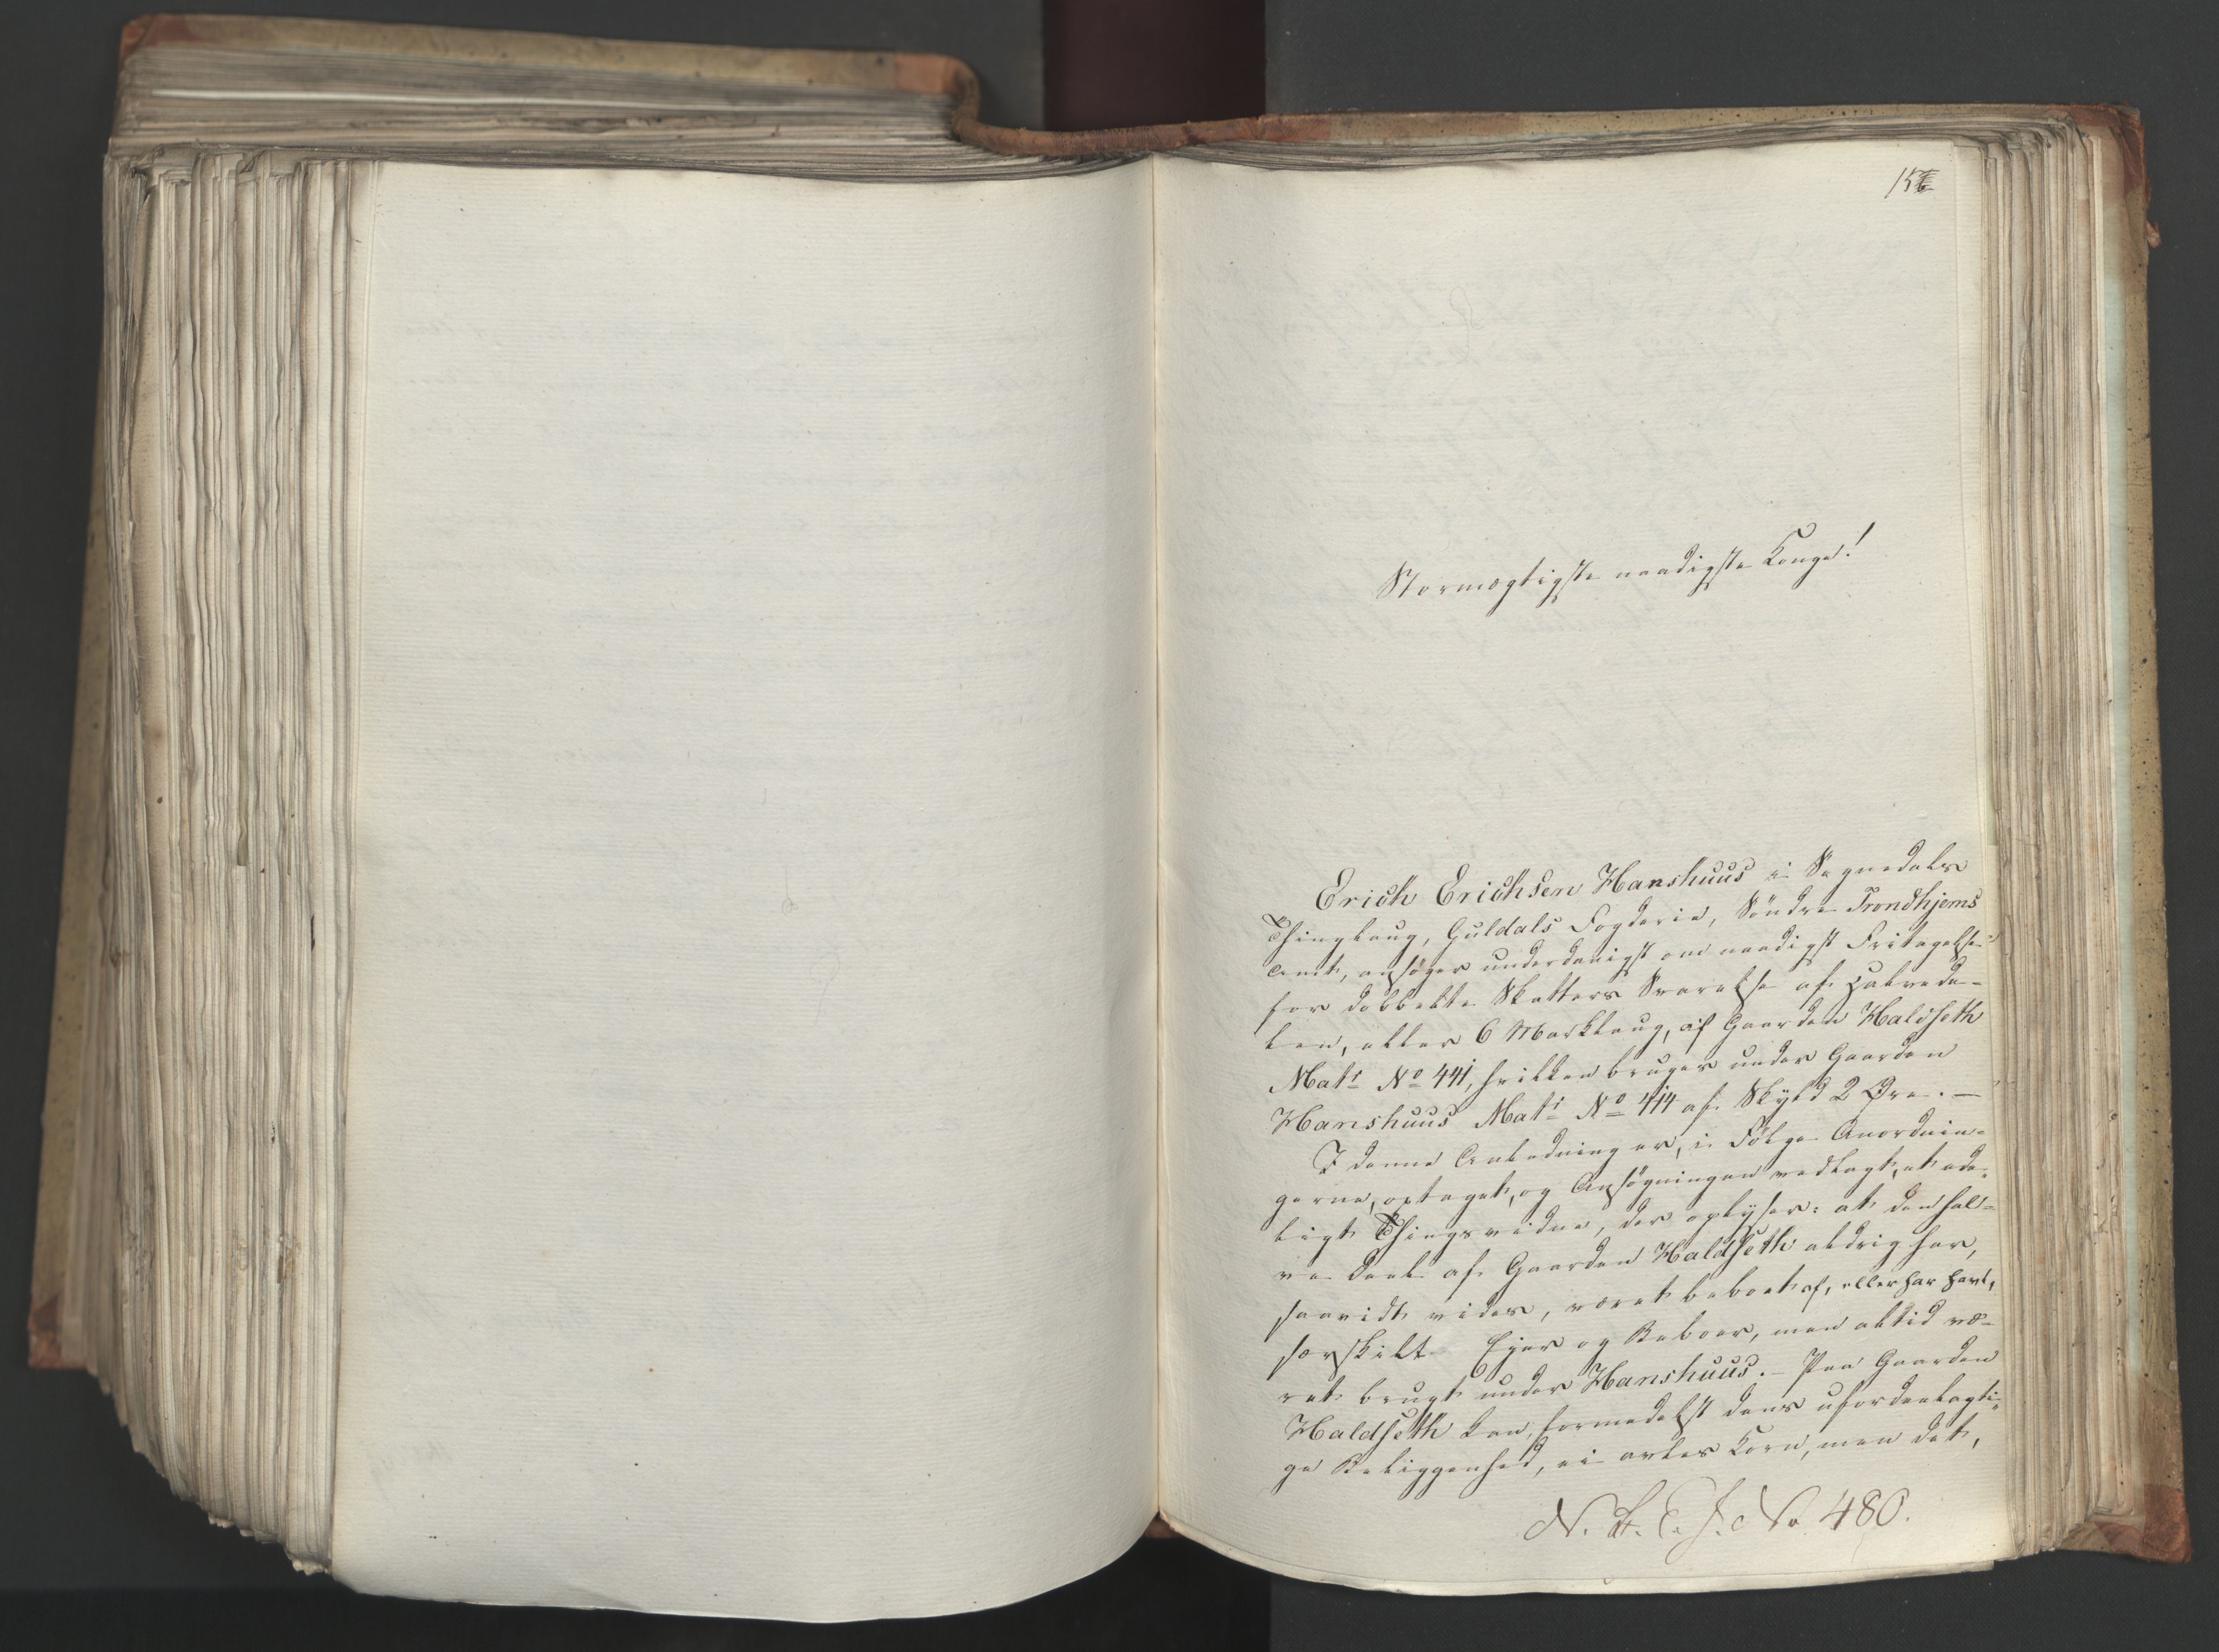 Stormægtigste naadigste Konge!
Erich Erichsen Hanshuus i Sognedals
Thinglaug, Guldals Fogderie, Söndre Trondhjems
Amt, ansöger underdanigst om naadigst Fritagelse
for dobbelte Skatters Svarelse af halvede-
len, eller 6 Marklaug, af Gaarden Haldseth
Matr No 441, hvilken bruges under Gaarden
Hanshuus Matr No 414 af Skyld 2 Øre. —
I denne Anledning er, i Fölge Anordnin-
gerne, optaget, og Ansögningen vedlagt, et ede-
ligt Thingsvidne, der oplyser: at den hal-
ve Deel af Gaarden Haldseth aldrig har,
saavidt vides, været beboet af, eller har havt,
særskilt Ejer og Beboer, men altid væ-
ret brugt under Hanshuus. – Paa Gaarden
Haldseth kan, formedelst dens ufordeelagti-
ge Beliggenhed, ei avles Korn, men det,
No 480.